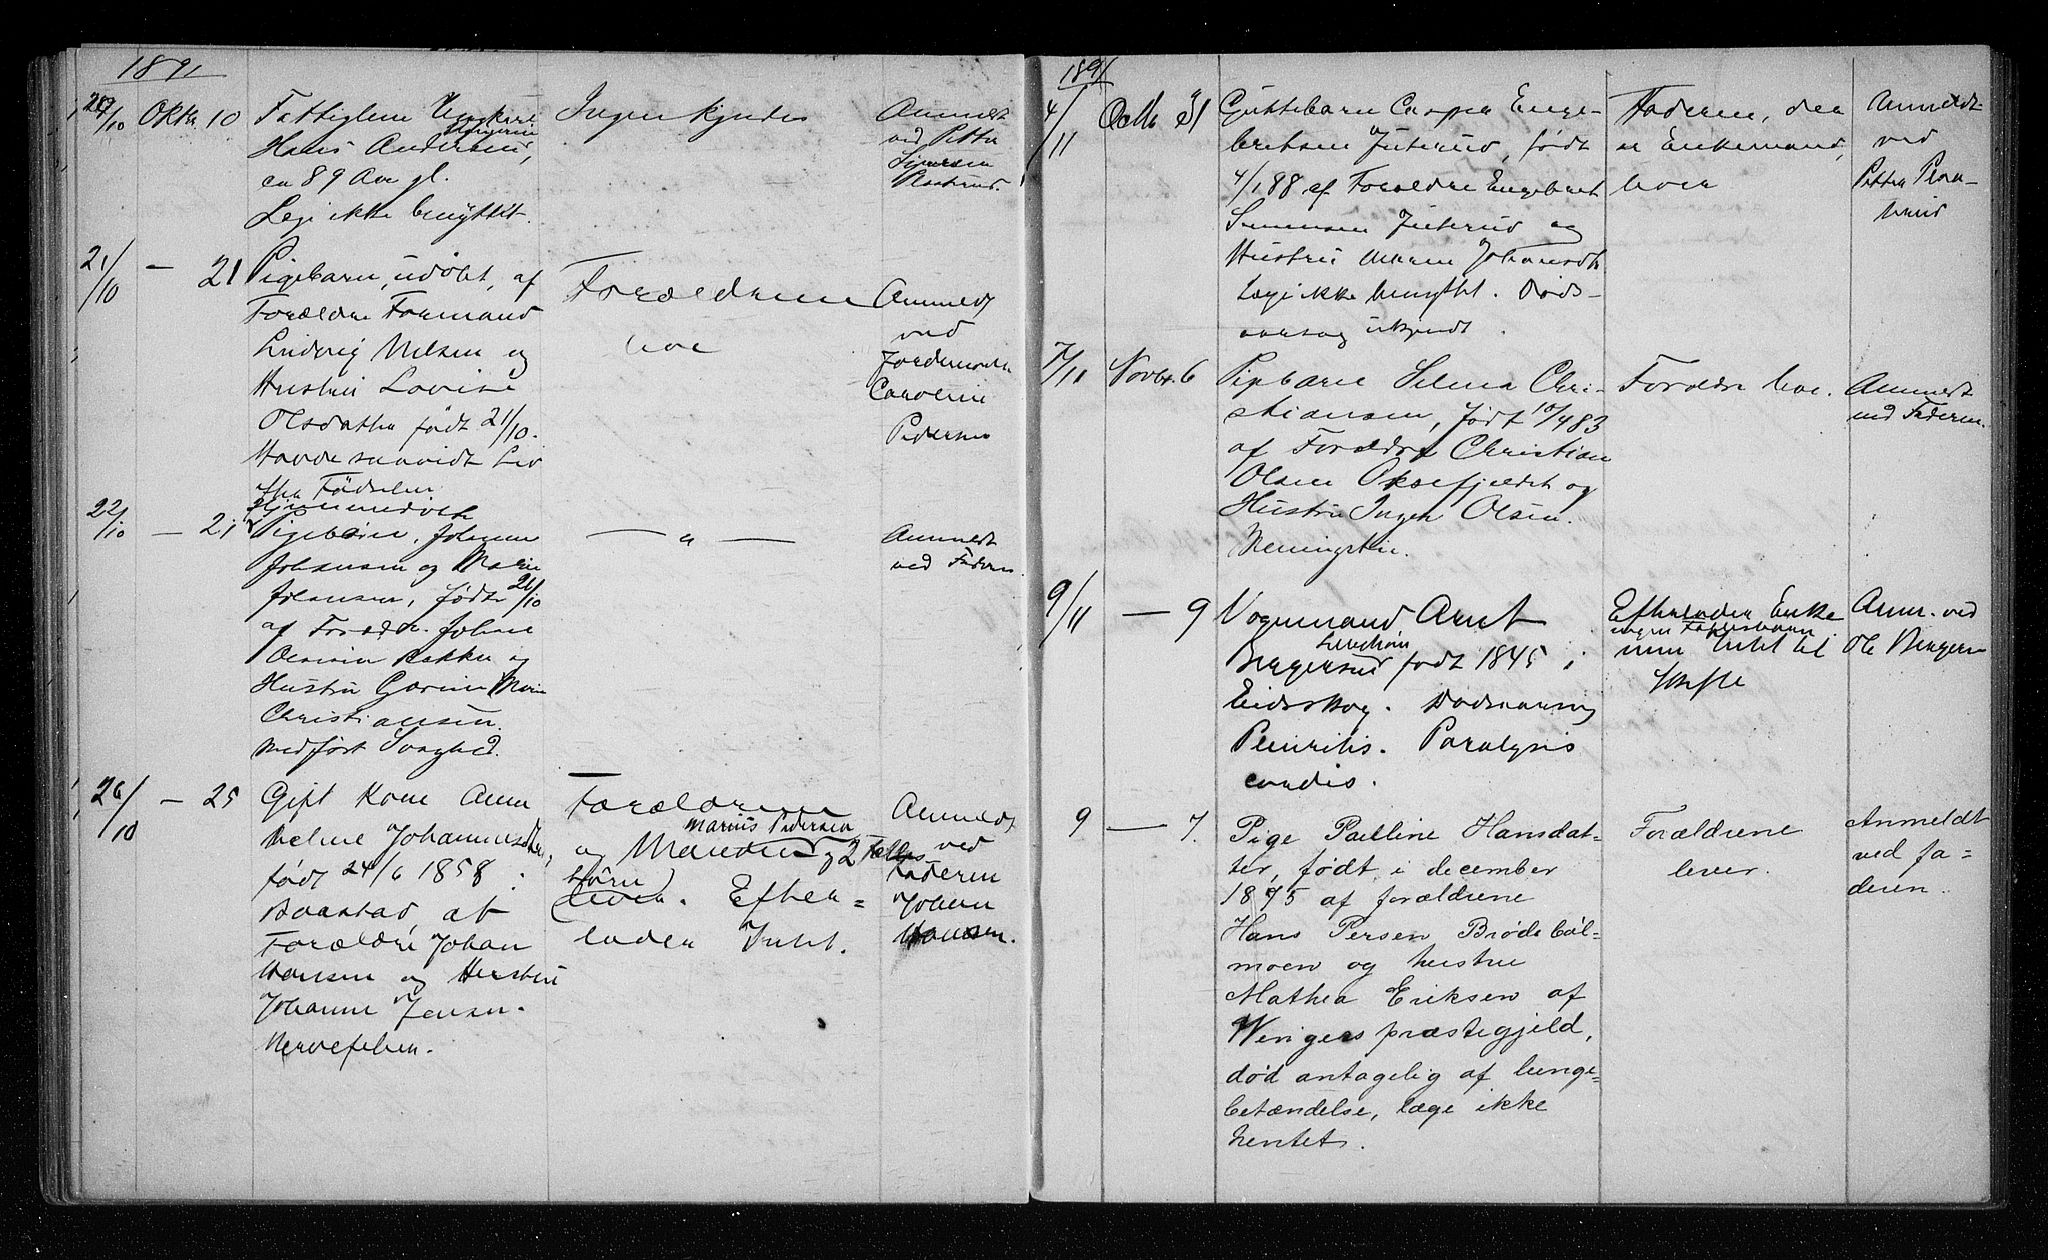 1891
20/10 Oktb. 10 Fattiglem Ungkarl
Hans Andersen,
ca 89 Aar gl.
Læge ikke benyttet.
Ingen kjendes
Anmeldt
ved Petter
21/10 — 21 Pigebarn, udøbt, af
Forældre Formand
Ludvig Nilsen og
Hustru Lovise
Olsdatter født 21/10.
Havde saavidt Liv
efter Fødselen
Forældrene
leve
Anmeldt
ved
Jordemoder
Caroline
Pedersen
22/10 — 21 Hjemmedøbte
Pigebørn, Johanne
Johansen og Marie
Johansen, fødte 21/10
af Foræld. Johan
Olsen Bakke og
Hustru
Christiansen.
Medfødt Svaghed.
— " —
Anmeldt
ved Faderen.
26/10 — 25 Gift Kone Anne
Helene Johannesdtr,
født 24/6 1858 i
Baastad, af
Forældre Johan
Hansen og Hustru
Johanne Jensen.
Nervefeber.
Forældrene
Marius Pedersen
og Manden og 2 Fælles
børn
lever. Efter=
lader Intet.
Anmeldt
ved
Faderen
Johan
Hansen.
1891
4/11 Octb 31 Guttebarn Casper Enge-
bretsen Juterud, født
4/1 88 af Forældre Engebret
Simensen Juterud og
Hustru Maren Johansdtr
Læge ikke benyttet. Døds-
aarsag ukjendt.
Faderen, der
er Enkemand,
lever
Anmeldt
ved
Petter
7/11 Novbr. 6 Pigebarn Selma Chri-
stiansen, født 10/4 83
af Forældre Christian
Olsen Oksefjeldet og
Hustru Inger Olsen.
Forældre leve.
Anmeldt
ved Faderen.
9/11 — 9 Vognmand Arnt
Bergersen født 1845 i
Eidsskog. Dødsaarsag
Pleuritis. Paralysis
cordis.
Efterlader Enke
ingen Fællesbørn
men Intet til
Skifte
Anm. ved
Ole Bergersen
9 — 7. Pige Pauline Hansdat-
ter, født i december
1875 af forældrene
Hans Persen Brødebøl-
moen og hustru
Mathea Eriksen af
Wingers præstegjeld,
død antagelig af lunge=
betændelse, læge ikke
hentet.
Forældrene
lever.
Anmeldt
ved fa=
deren.